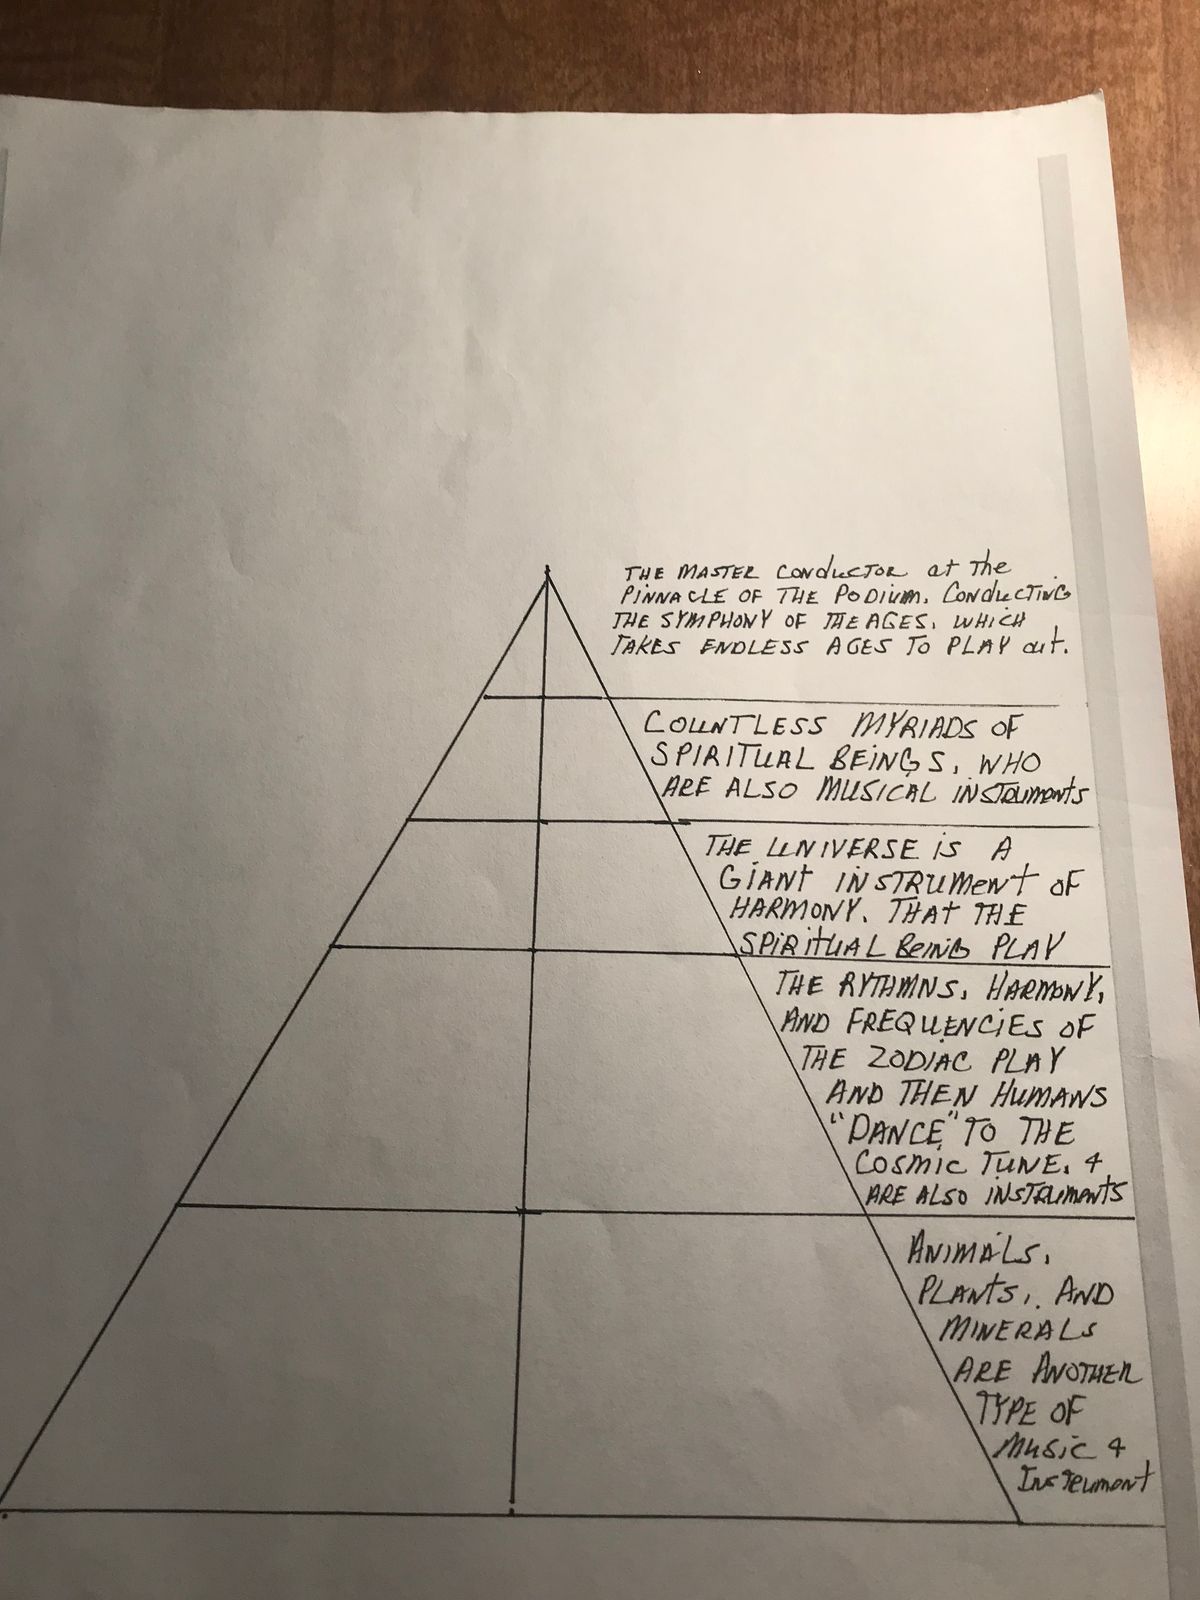 THE MASTER CONducTOR at the
PINNACLE OF THE PODium. CONducTING
THE SYMPHONY OF THE AGES. WHICH
TAKES ENDLESS AGES TO PLAY out.
COUNTLESS MYRIADS OF
SPIRITUAL BEiNGS, WHO
ARE ALSO MUSICAL INSTRUMENTS
THE UNIVERSE iS A
GIANT INSTRUMENT OF
HARMONY. THAT THE
SPIRITUAL BEING PLAY
THE RYTHMNS, HARMONY,
AND FREQUENCIES OF
THE ZODIAC PLAY
AND THEN HUMANS
"DANCE" TO THE
COSMIC TUNE. &
ARE ALSO INSTRUMENTS
ANIMALS,
PLANTS, AND
MINERALS
ARE ANOTHER
TYPE OF
MUSIC &
INSTRUMENT